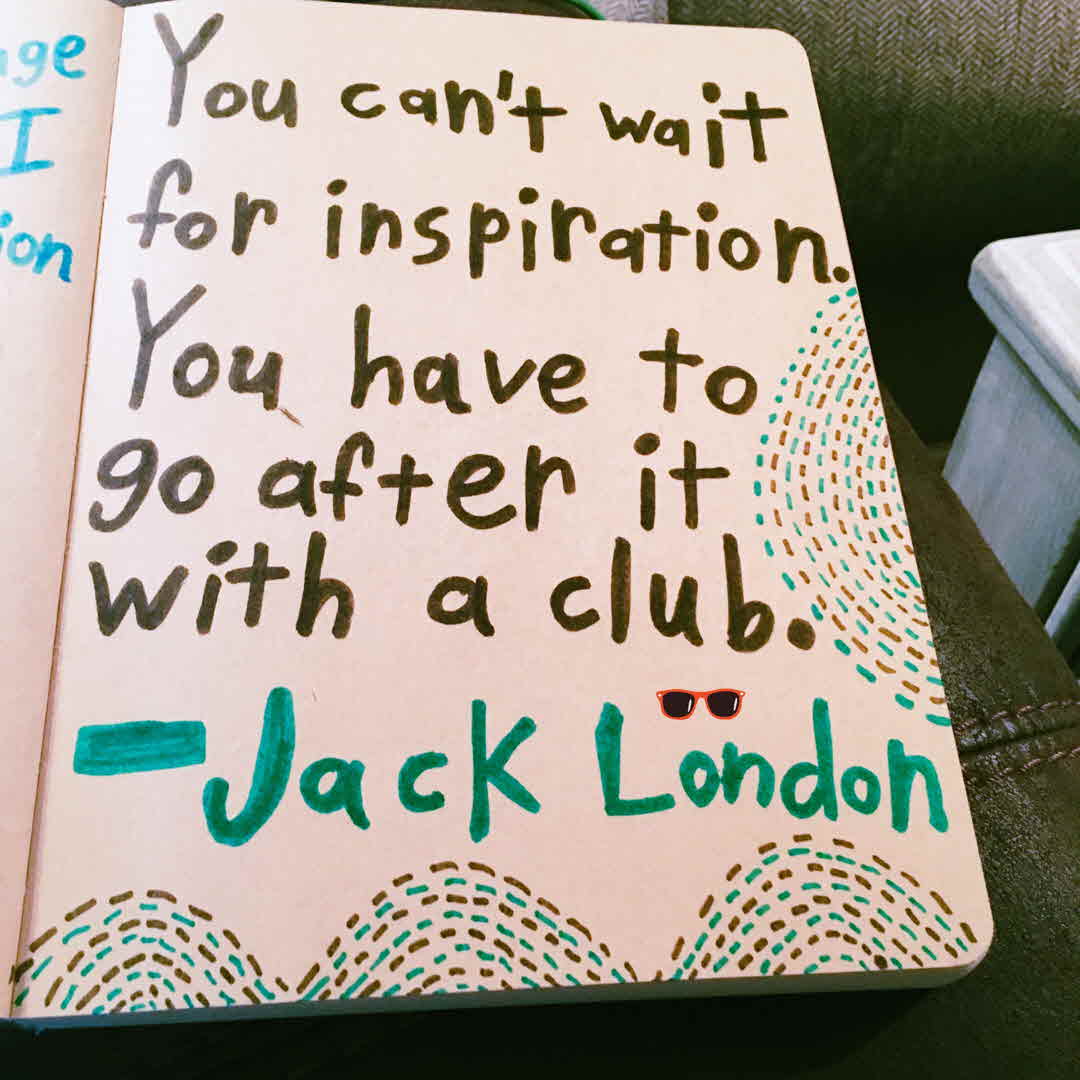 You can't wait
for inspiration.
You have to
go after it
with a club.
-Jack London
I
ion